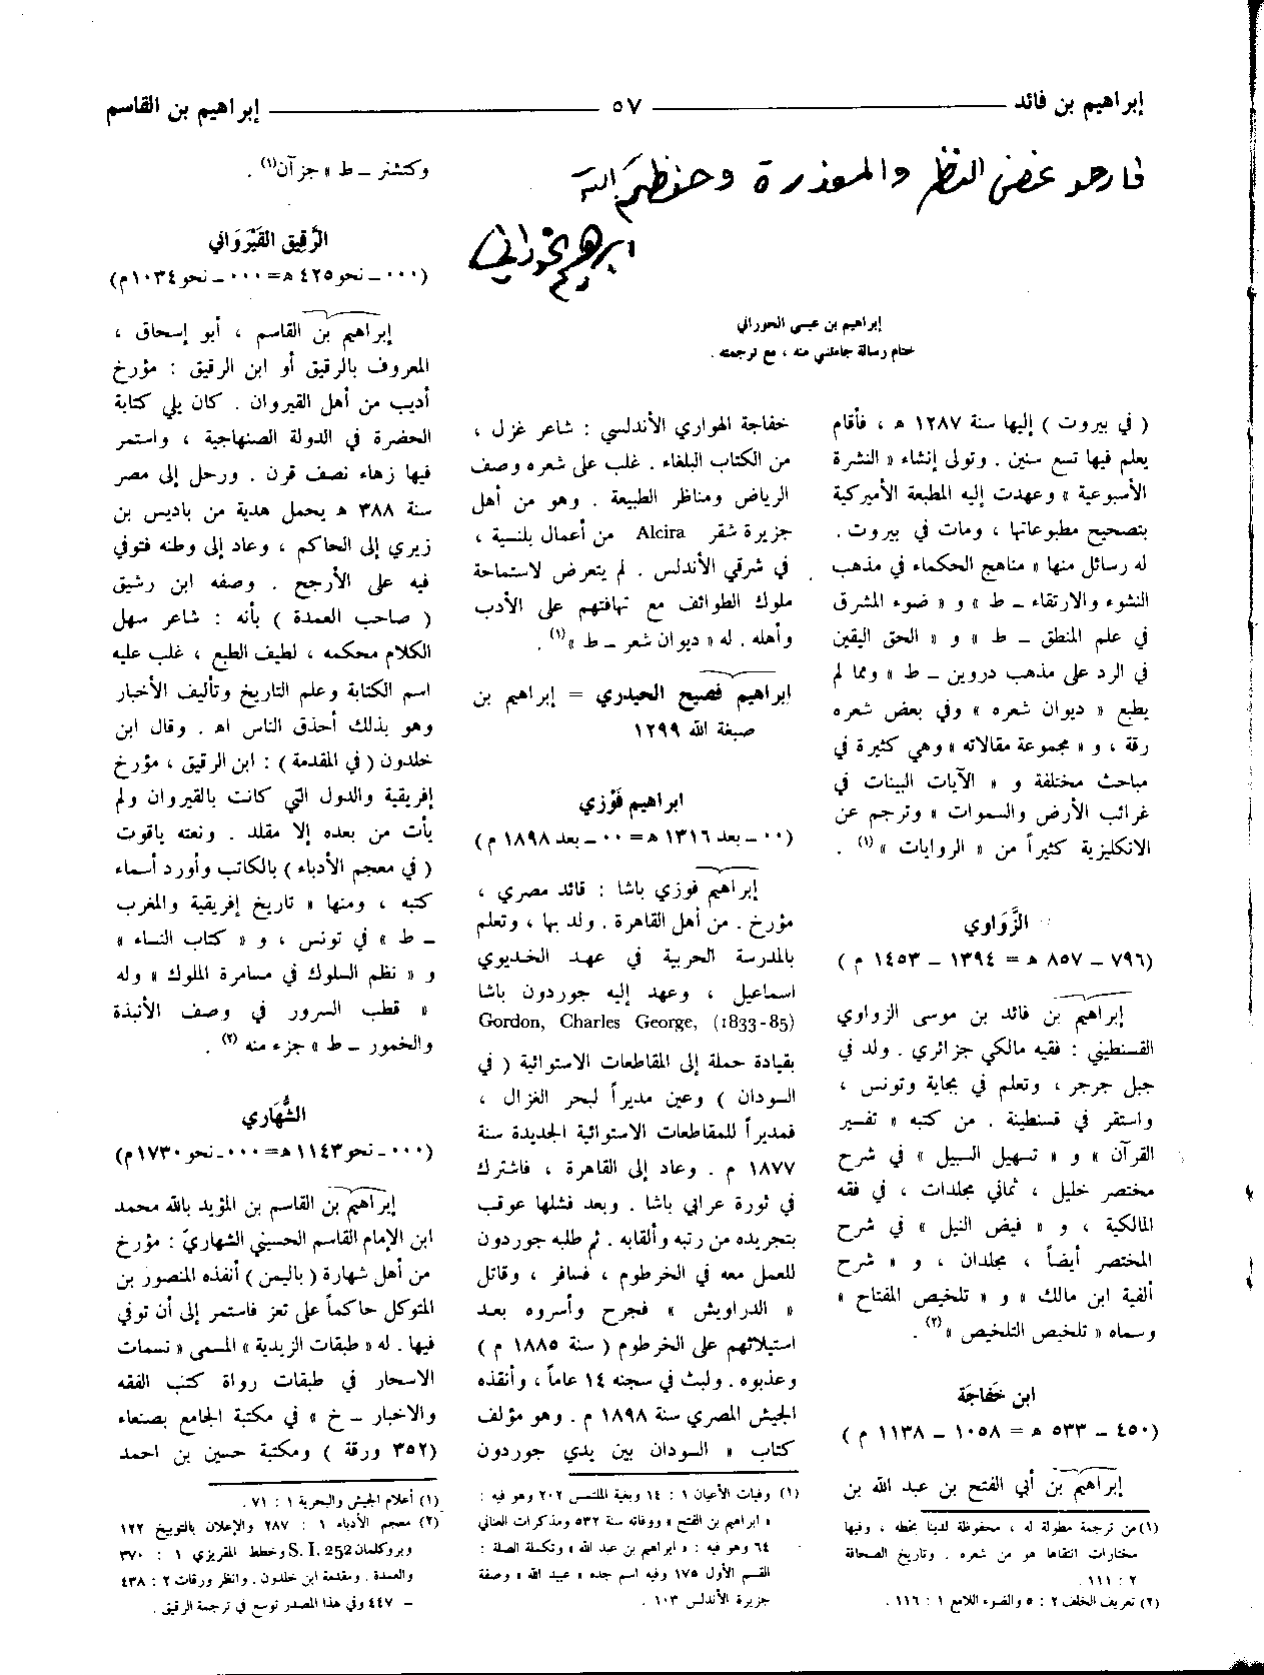 إبراهيم بن فائد
٥٧
إبراهيم بن القاسم
فارجو غض النظر والمعذرة وحفظكم الله
ابرهيم الحوراني
إبراهيم بن عيسى الحوراني
ختام رسالة جاءتني منه ، مع ترجمته .
( في بيروت ) إليها سنة ١٢٨٧ ه ، فأقام
يعلم فيها تسع سنين . وتولى إنشاء « النشرة
الأسبوعية » وعهدت إليه المطبعة الأميركية
بتصحيح مطبوعاتها ، ومات في بيروت .
له رسائل منها « مناهج الحكماء في مذهب
النشوء والارتقاء ــ ط » و « ضوء المشرق
في علم المنطق ــ ط » و « الحق اليقين
في الرد على مذهب دروين ــ ط » ومما لم
يطبع « ديوان شعره » وفي بعض شعره
رقة ، و « مجموعة مقالاته » وهي كثيرة في
مباحث مختلفة و « الآيات البينات في
غرائب الأرض والسموات » وترجم عن
الانكليزية كثيراً من « الروايات » (١) .
الزَّوَاوي
(٧٩٦ ــ ٨٥٧ ه = ١٣٩٤ ــ ١٤٥٣ م )
إبراهيم بن فائد بن موسى الزواوي
القسنطيني : فقيه مالكي جزائري . ولد في
جبل جرجر ، وتعلم في بجاية وتونس ،
واستقر في قسنطينة . من كتبه « تفسير
القرآن » و « تسهيل السبيل » في شرح
مختصر خليل ، ثماني مجلدات ، في فقه
المالكية ، و « فيض النيل » في شرح
المختصر أيضاً ، مجلدان ، و « شرح
ألفية ابن مالك » و « تلخيص المفتاح »
وسماه « تلخيص التلخيص » (٢) .
ابن خَفَاجَة
(٤٥٠ ــ ٥٣٣ ه = ١٠٥٨ ــ ١١٣٨ م )
إبراهيم بن أبي الفتح بن عبد الله بن
(١) من ترجمة مطولة له ، محفوظة لدينا بخطه ، وفيها
مختارات انتقاها هو من شعره . وتاريخ الصحافة
٢ : ١١١ .
(٢) تعريف الخلف ٢ : ٥ والضوء اللامع ١ : ١١٦ .
خفاجة الهواري الأندلسي : شاعر غزل ،
من الكتاب البلغاء . غلب على شعره وصف
الرياض ومناظر الطبيعة . وهو من أهل
جزيرة شقر Alcira من أعمال بلنسية ،
في شرقي الأندلس . لم يتعرض لاستماحة
ملوك الطوائف مع تهافتهم على الأدب
وأهله . له « ديوان شعر ــ ط » (١) .
إبراهيم فصيح الحيدري = إبراهيم بن
صبغة الله ١٢٩٩
ابراهيم فَوْزي
(٠٠ ــ بعد ١٣١٦ ه = ٠٠ ــ بعد ١٨٩٨ م )
إبراهيم فوزي باشا : قائد مصري ،
مؤرخ . من أهل القاهرة . ولد بها ، وتعلم
بالمدرسة الحربية في عهد الخديوي
اسماعيل ، وعهد إليه جوردون باشا
Gordon, Charles George, (1833-85)
بقيادة حملة إلى المقاطعات الاستوائية ( في
السودان ) وعين مديراً لبحر الغزال ،
فمديراً للمقاطعات الاستوائية الجديدة سنة
١٨٧٧ م . وعاد إلى القاهرة ، فاشترك
في ثورة عرابي باشا . وبعد فشلها عوقب
بتجريده من رتبه وألقابه . ثم طلبه جوردون
للعمل معه في الخرطوم ، فسافر ، وقاتل
« الدراويش » فجرح وأسروه بعد
استيلائهم على الخرطوم ( سنة ١٨٨٥ م )
وعذبوه . ولبث في سجنه ١٤ عاماً ، وأنقذه
الجيش المصري سنة ١٨٩٨ م . وهو مؤلف
كتاب « السودان بين يدي جوردون
(١) وفيات الأعيان ١ : ١٤ وبغية الملتمس ٢٠٢ وهو فيه :
« ابراهيم بن الفتح » ووفاته سنة ٥٣٢ ومذكرات العناني
٦٤ وهو فيه : « ابراهيم بن عبد الله » وتكملة الصلة :
القسم الأول ١٧٥ وفيه اسم جده « عبيد الله » وصفة
جزيرة الأندلس ١٠٣ .
وكتشنر ــ ط » جزآن (١) .
الرَّقِيق القَيْرَوَاني
(٠٠٠ ــ نحو ٤٢٥ ه = ٠٠٠ ــ نحو ١٠٣٤ م)
إبراهيم بن القاسم ، أبو إسحاق ،
المعروف بالرقيق أو ابن الرقيق : مؤرخ
أديب من أهل القيروان . كان يلي كتابة
الحضرة في الدولة الصنهاجية ، واستمر
فيها زهاء نصف قرن . ورحل إلى مصر
سنة ٣٨٨ ه يحمل هدية من باديس بن
زيري إلى الحاكم ، وعاد إلى وطنه فتوفي
فيه على الأرجح . وصفه ابن رشيق
( صاحب العمدة ) بأنه : شاعر سهل
الكلام محكمه ، لطيف الطبع ، غلب عليه
اسم الكتابة وعلم التاريخ وتأليف الأخبار
وهو بذلك أحذق الناس اه . وقال ابن
خلدون ( في المقدمة ) : ابن الرقيق ، مؤرخ
إفريقية والدول التي كانت بالقيروان ولم
يأت من بعده إلا مقلد . ونعته ياقوت
( في معجم الأدباء ) بالكاتب وأورد أسماء
كتبه ، ومنها « تاريخ إفريقية والمغرب
ــ ط » في تونس ، و « كتاب النساء »
و « نظم السلوك في مسامرة الملوك » وله
« قطب السرور في وصف الأنبذة
والخمور ــ ط » جزء منه (٢) .
الشُّهَاري
(٠٠٠ ــ نحو ١١٤٣ ه = ٠٠٠ ــ نحو ١٧٣٠ م)
إبراهيم بن القاسم بن المؤيد بالله محمد
ابن الإمام القاسم الحسيني الشهاريّ : مؤرخ
من أهل شهارة ( باليمن ) أنفذه المنصور بن
المتوكل حاكماً على تعز فاستمر إلى أن توفي
فيها . له « طبقات الزيدية » المسمى « نسمات
الاسحار في طبقات رواة كتب الفقه
والاخبار ــ خ » في مكتبة الجامع بصنعاء
(٣٥٢ ورقة ) ومكتبة حسين بن احمد
(١) أعلام الجيش والبحرية ١ : ٧١ .
(٢) معجم الأدباء ١ : ٢٨٧ والإعلان بالتوبيخ ١٢٢
وبروكلمان S. I. 252 وخطط المقريزي ١ : ٣٧٠
والعمدة . ومقدمة ابن خلدون . وانظر ورقات ٢ : ٤٣٨
ــ ٤٤٧ وفي هذا المصدر توسع في ترجمة الرقيق .